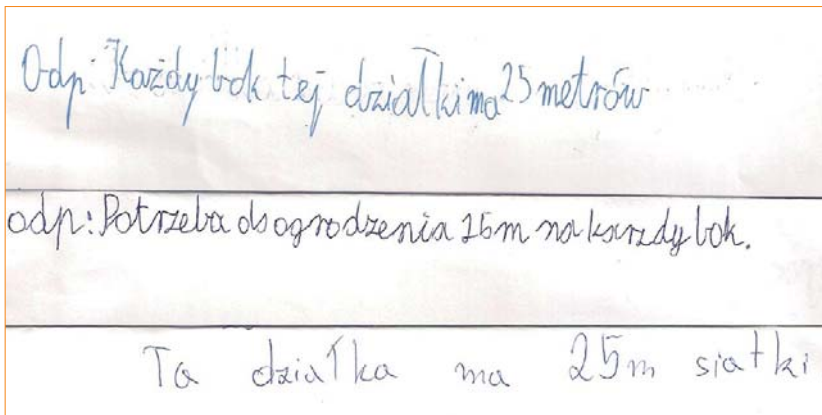 Odp: Każdy bok tej działki ma 25 metrów
odp: Potrzeba do ogrodzenia 25m na karzdy bok.
Ta działka ma 25m siatki